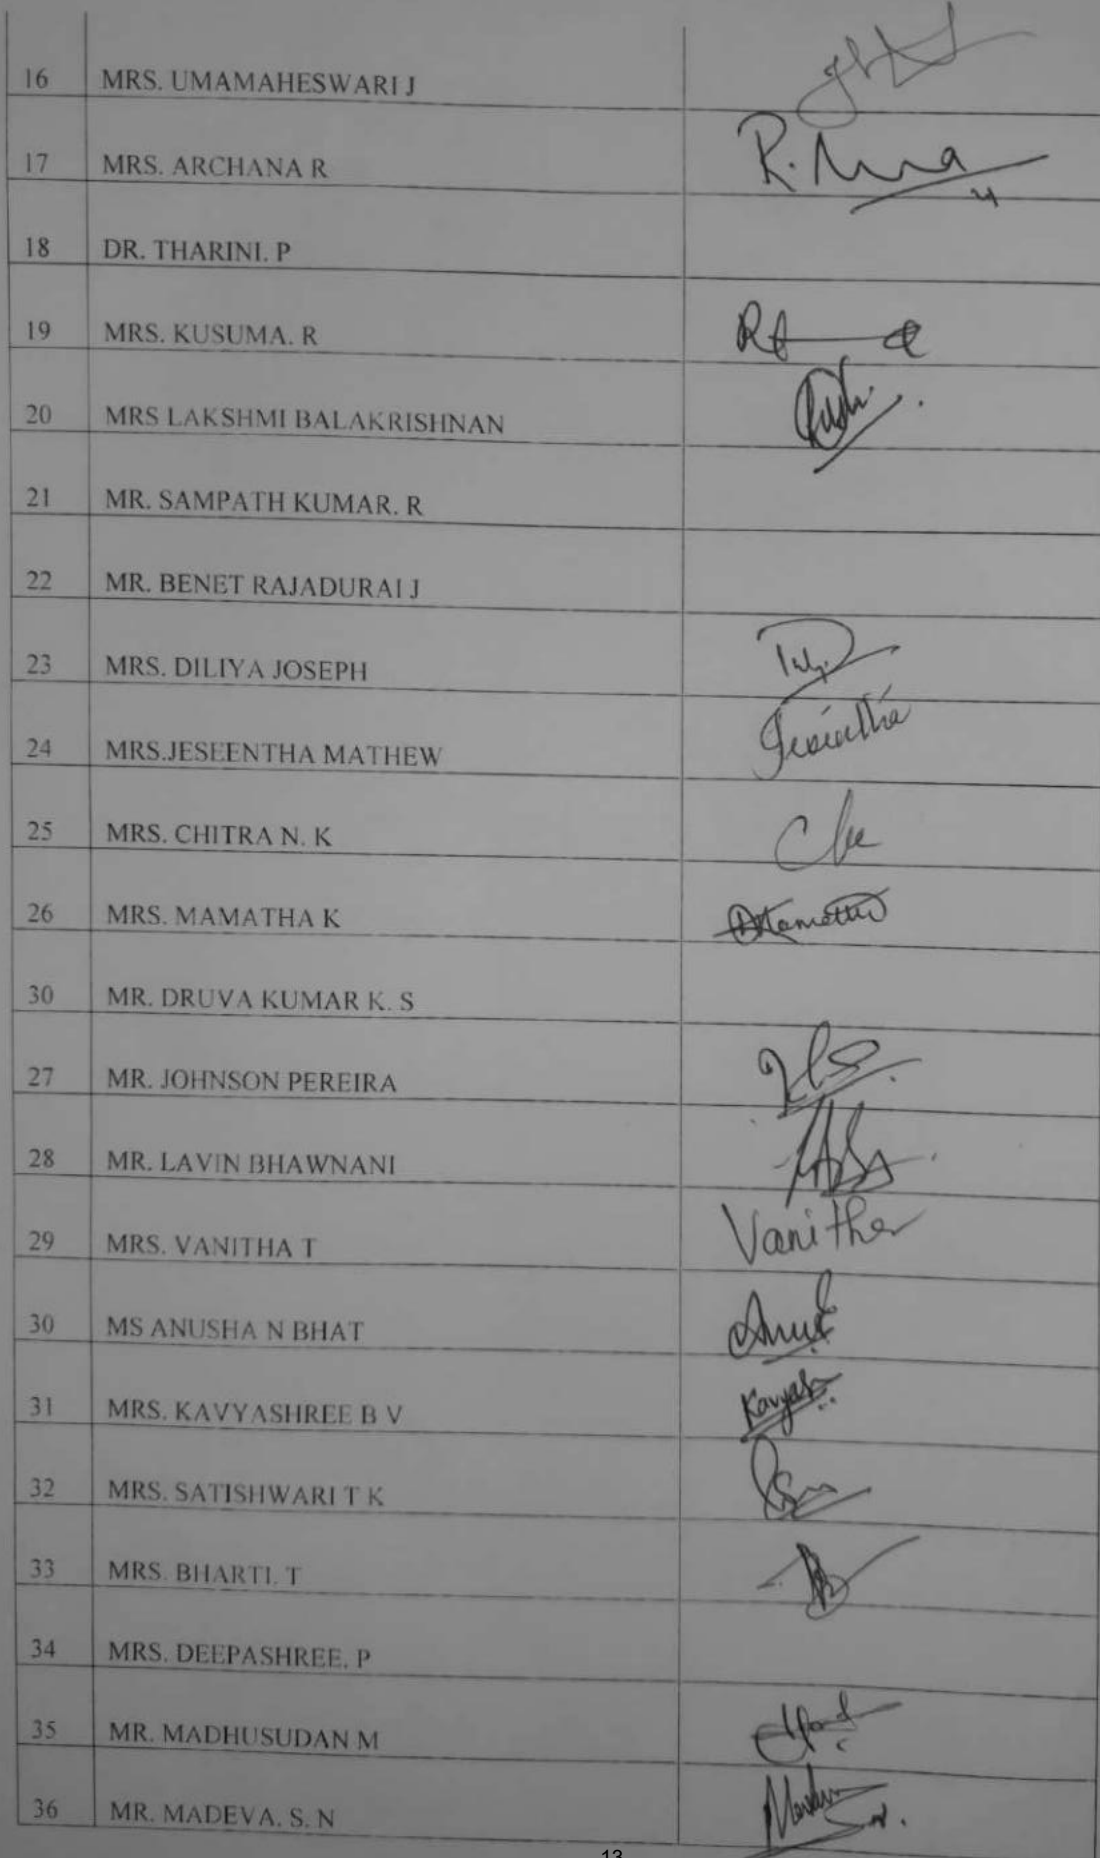 16 MRS. UMAMAHESWARI J
17 MRS. ARCHANA R R.
18 DR. THARINI. P
19 MRS. KUSUMA. R
20 MRS LAKSHMI BALAKRISHNAN
21 MR. SAMPATH KUMAR. R
22 MR. BENET RAJADURAI J
23 MRS. DILIYA JOSEPH
24 MRS.JESEENTHA MATHEW
25 MRS. CHITRA N. K
26 MRS. MAMATHA K
30 MR. DRUVA KUMAR K. S
27 MR. JOHNSON PEREIRA
28 MR. LAVIN BHAWNANI
29 MRS. VANITHA T Vanitha
30 MS ANUSHA N BHAT
31 MRS. KAVYASHREE B V
32 MRS. SATISHWARI T K
33 MRS. BHARTI. T
34 MRS. DEEPASHREE. P
35 MR. MADHUSUDAN M
36 MR. MADEVA. S. N
13